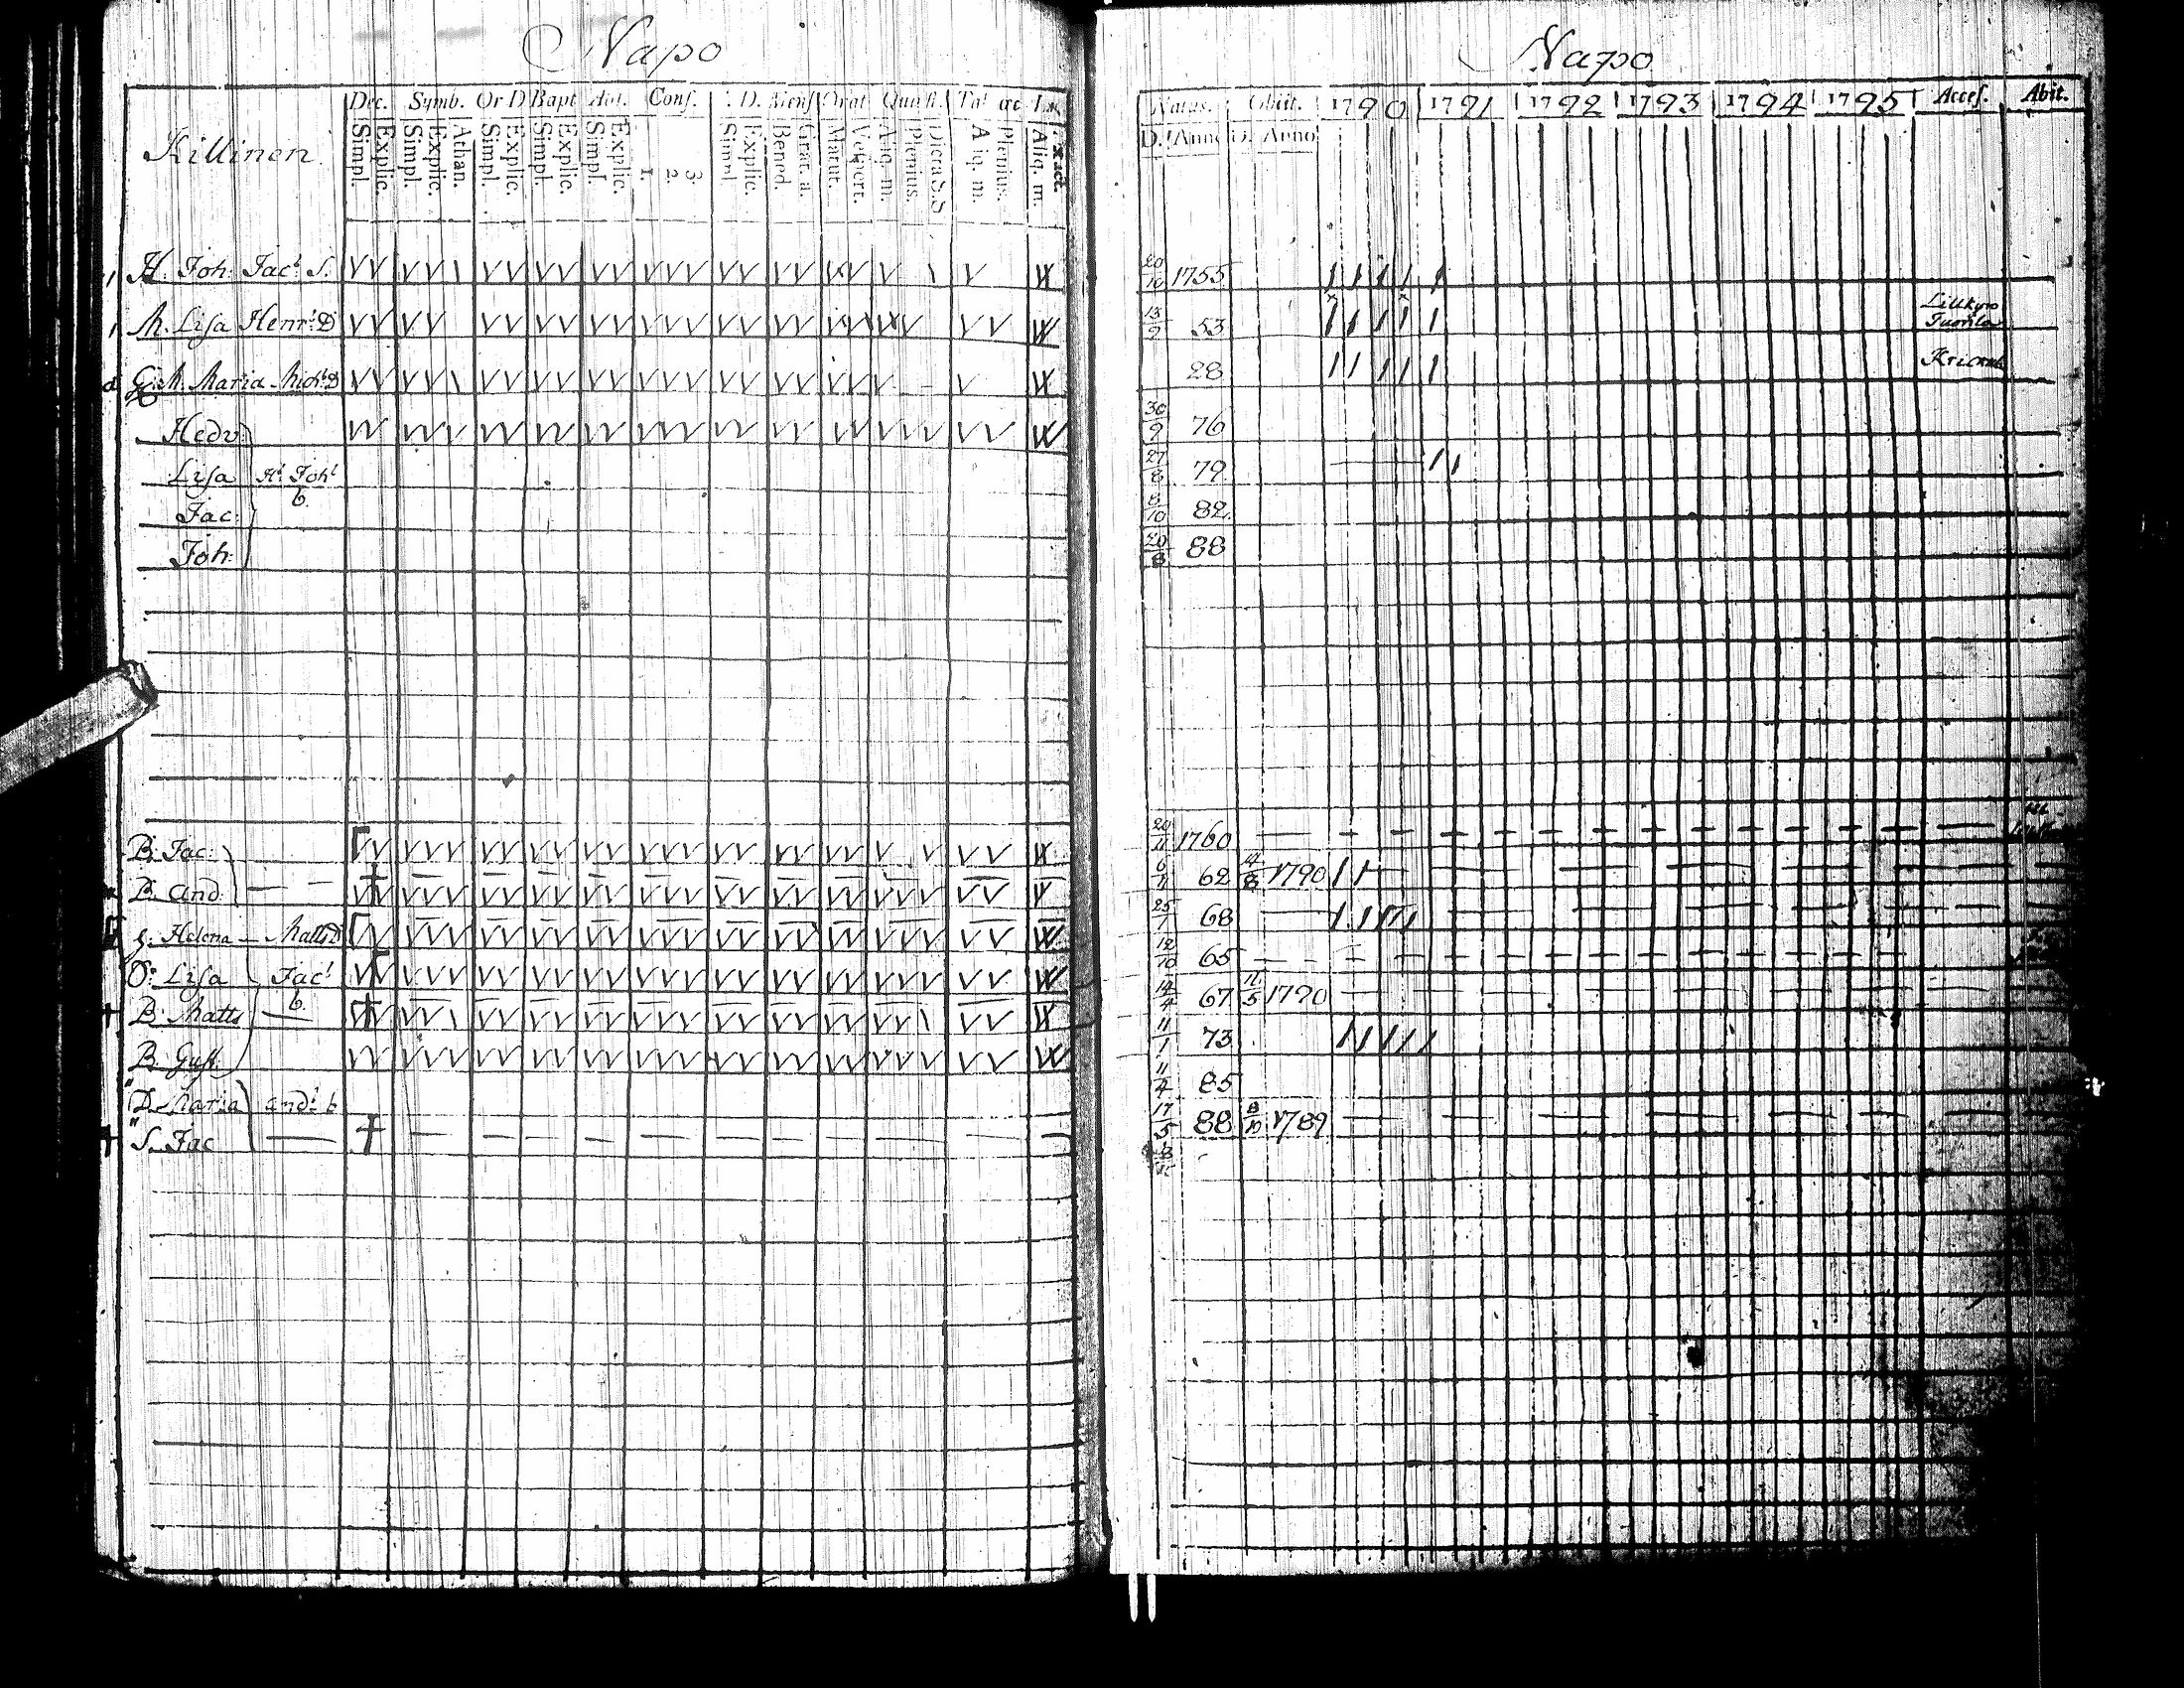 Napo
Killinen
Dec. Symb. Or D Bapt Abs. Conf. D. Mens Orat Quæst. Tab œc
Simpl. Explic. Simpl. Explic. Athan. Simpl. Explic. Simpl. Explic. Simpl. Explic. 1. 2. 3. Simpl. Explic. Bened. Grat. a. Matut. Vespert. Aliq. m. Plenius. Dicta S.S Aliq. m. Plenius. Aliq. m. Exact.
H. Joh: Jac: S.
M. Lisa Henr: D
G: M. Maria Mich: D
Hedv:
Lisa Hb Joh:
b.
Jac:
Joh:
B: Jac:
B: And:
H: Helena Matts D
D: Lisa Jac:
B: Matts b.
B: Gust.
D. Maria And: b
S. Jac
Napo
Natus. Obiit. 1790 1791 1792 1793 1794 1795 Access. Abit.
D. Anno D. Anno
20/10 1755
13/2 53 Lillkyro
Tuorila
28
30/9 76
27/8 79
8/10 82
20/8 88
20/11 1760
6/11 62 4/8 1790
25/1 68
12/10 65
14/4 67 16/5 1790
11/1 73
11/4 85
17/5 88 8/10 1789